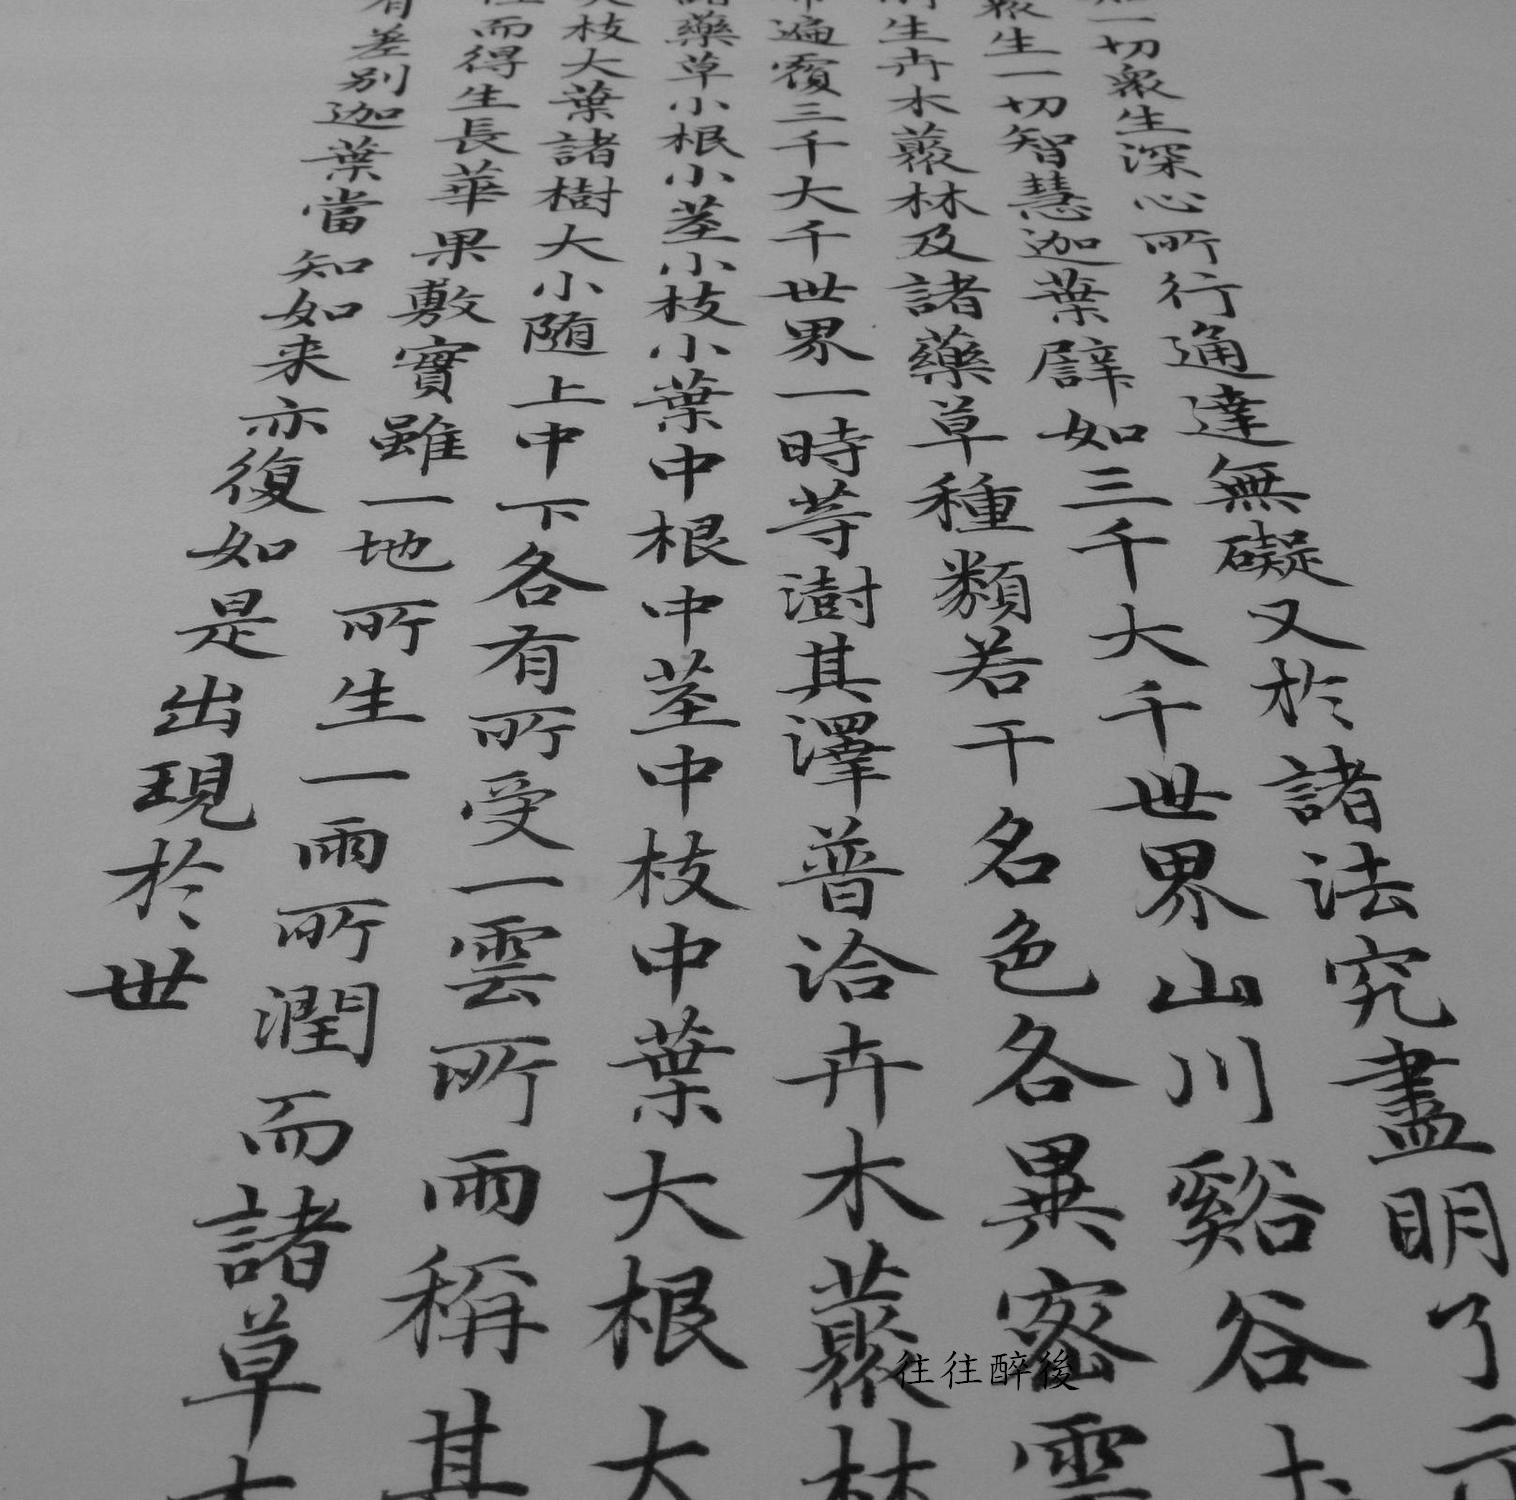 一切衆生深心所行通達無礙又於諸法究盡明了示
衆生一切智慧迦葉譬如三千大千世界山川谿谷土
生卉木藂林及諸藥草種類若干名色各異密雲
遍覆三千大千世界一時等澍其澤普洽卉木藂林
諸藥草小根小莖小枝小葉中根中莖中枝中葉大根大
枝大葉諸樹大小随上中下各有所受一雲所雨稱其
而得生長華果敷實雖一地所生一雨所潤而諸草木
有差别迦葉當知如来亦復如是出現於世
往往醉後